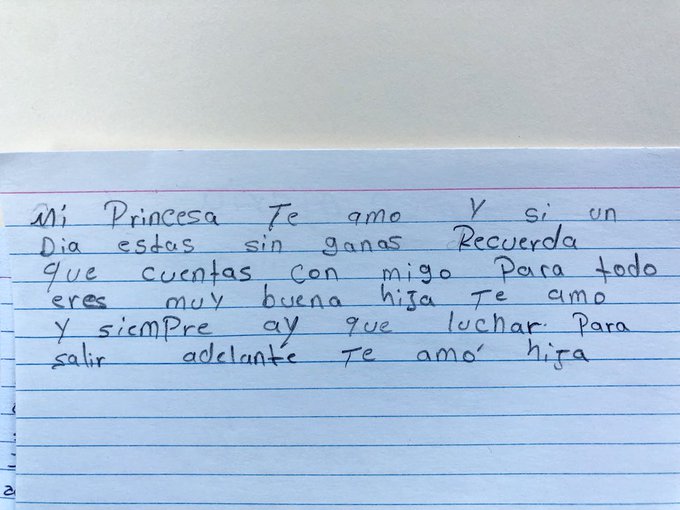 Mi Princesa Te amo Y si un
Dia estas sin ganas Recuerda
que cuentas con migo Para todo
eres muy buena hija Te amo
Y siempre ay que luchar. Para
salir adelanté Te amó hija
a